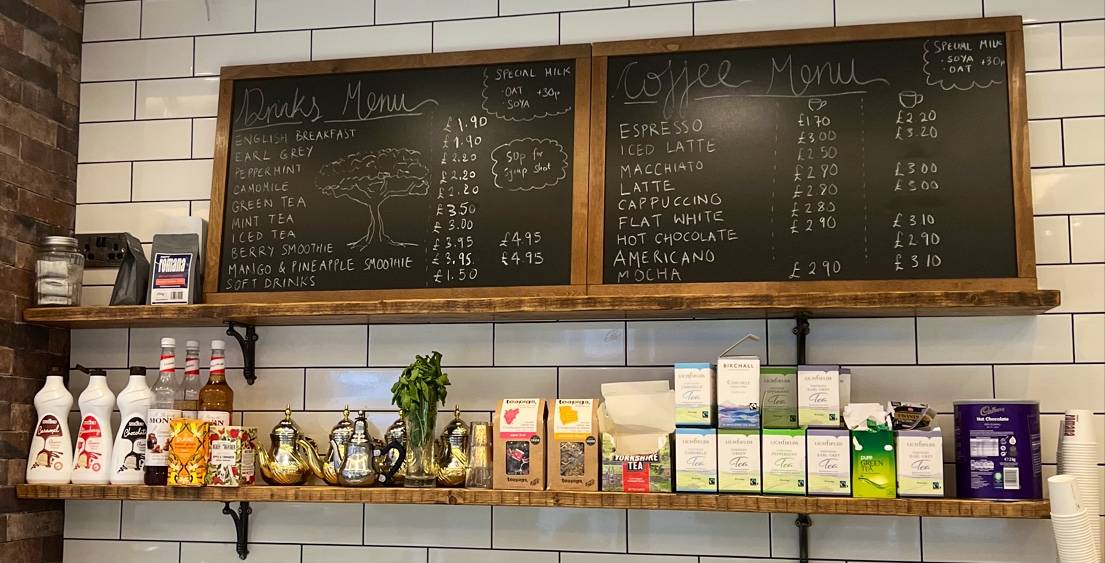 Drinks Menu
SPECIAL MILK
· OAT +30p
· SOYA
ENGLISH BREAKFAST £1.90
EARL GREY £1.90
PEPPERMINT £2.20
CAMOMILE £2.20
GREEN TEA £2.20
MINT TEA £3.50
ICED TEA £3.00
BERRY SMOOTHIE £3.95 £4.95
MANGO & PINEAPPLE SMOOTHIE £3.95 £4.95
SOFT DRINKS £1.50
50p for
syrup shot
Coffee Menu
SPECIAL MILK
· SOYA +30p
· OAT
ESPRESSO £1.70 £2.20
ICED LATTE £3.00 £3.20
MACCHIATO £2.50
LATTE £2.90 £3.00
CAPPUCCINO £2.80 £3.00
FLAT WHITE £2.80
HOT CHOCOLATE £2.90 £3.10
AMERICANO £2.90
MOCHA £2.90 £3.10
romana
Caramel
Chocolate
teapigs.
teapigs.
teapigs.
teapigs.
YORKSHIRE
TEA
LICHFIELDS
Tea
BIRCHALL
CAMOMILE
LICHFIELDS
Tea
LICHFIELDS
Tea
LICHFIELDS
Tea
LICHFIELDS
Tea
LICHFIELDS
PEPPERMINT
Tea
LICHFIELDS
EARL GREY
Tea
pure
GREEN
TEA
LICHFIELDS
EARL GREY
Tea
Cadbury
Hot Chocolate